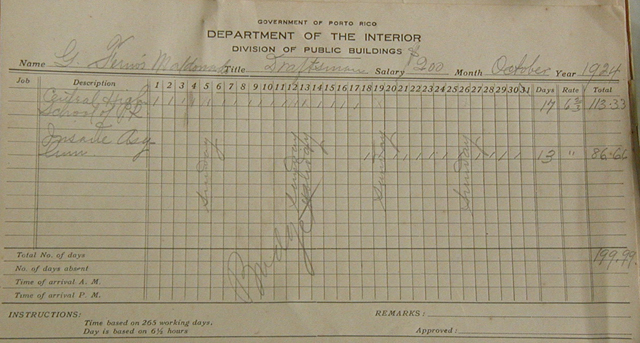 GOVERNMENT OF PORTO RICO
DEPARTMENT OF THE INTERIOR
DIVISION OF PUBLIC BUILDINGS
Name G. Maldonado Title Draftsman Salary $200 Month October Year 1924
Job Description 1 2 3 4 5 6 7 8 9 10 11 12 13 14 15 16 17 18 19 20 21 22 23 24 25 26 27 28 29 30 31 Days Rate Total
Central High 17 6 2/3 113.33
School of
Insane Asy-
lum 13 " 86.66
Sunday Sunday Sunday Sunday
Budget
Total No. of days 199.99
No. of days absent
Time of arrival A. M.
Time of arrival P. M.
INSTRUCTIONS: REMARKS:
Time based on 265 working days,
Day is based on 6½ hours Approved: